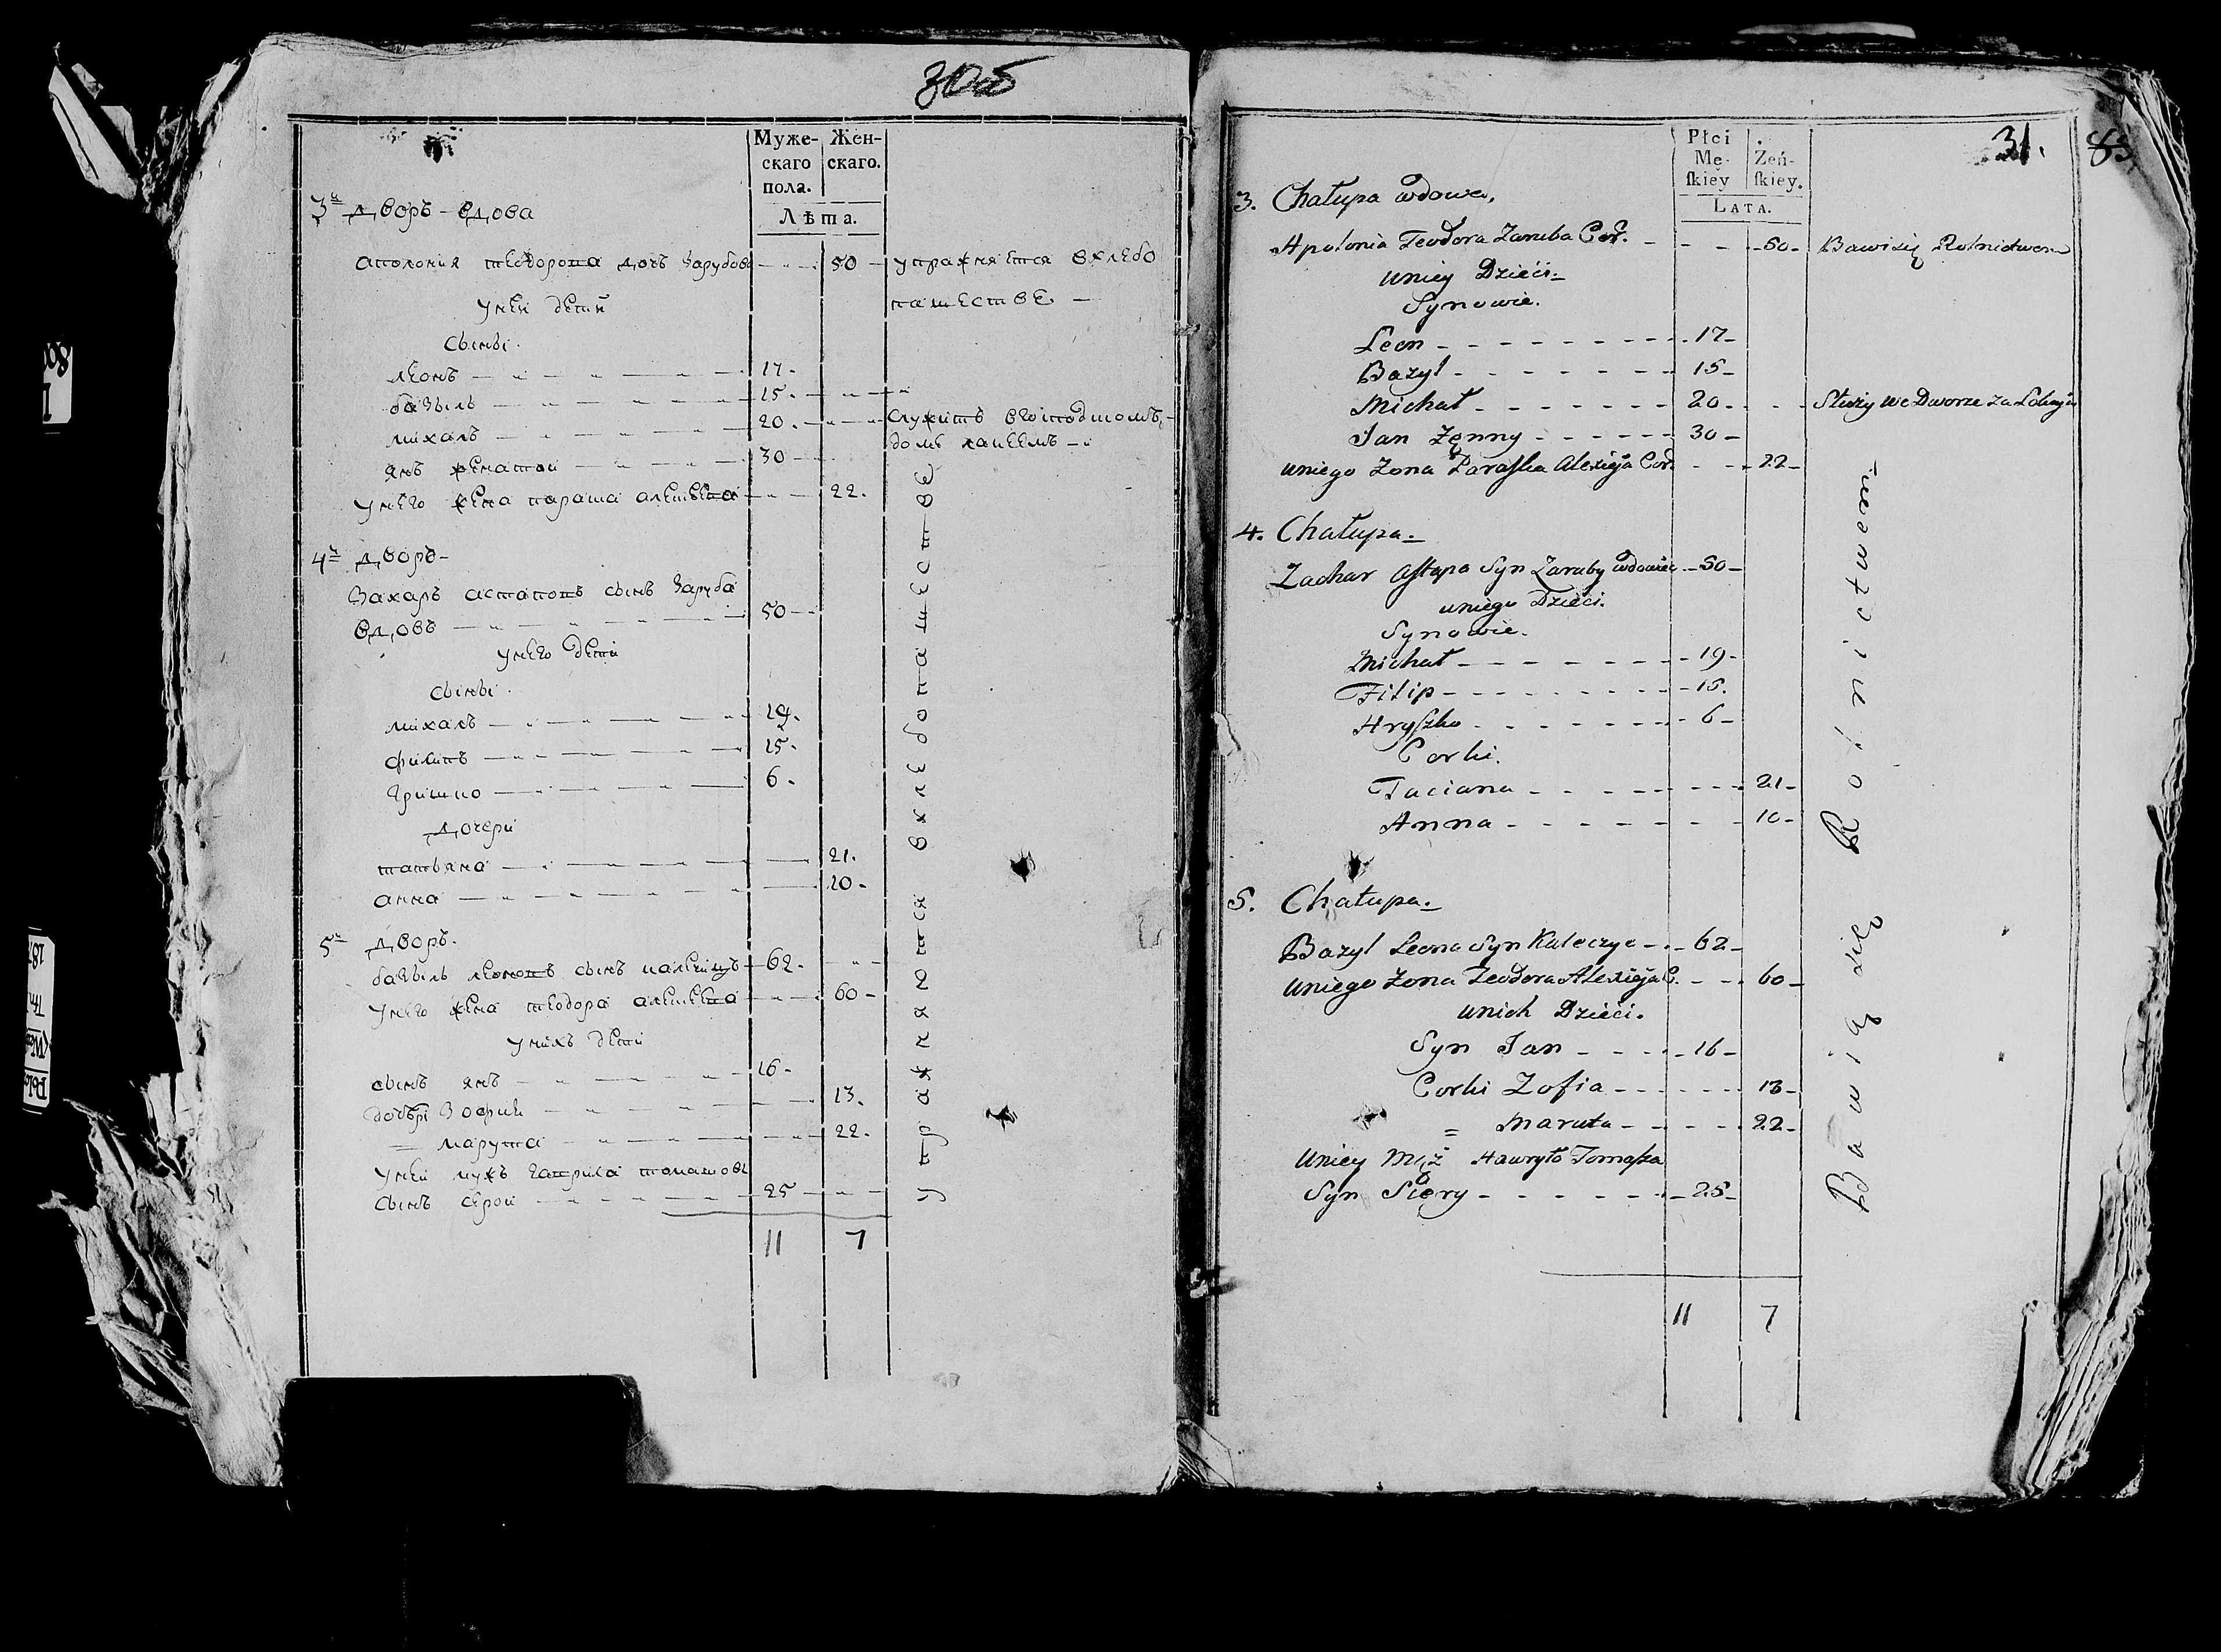 30об
Муже-
скаго
пола.
Жен-
скаго.
Лѣта.
3й дворъ - вдова
аполония теодорова дочь Зарубова 50 упражняется вхлебо
пашестве
унеи дети
Сыны.
леонъ 17.
базыль 15.
михалъ 20. служитъ вгосподскомъ
доме лакеемъ
янъ женатои 30
унего жена параша алексеева 22.
4й дворъ-
Захаръ астаповъ сынъ Заруба
вдовъ 50
унего дети
сыны.
михалъ 19.
филипъ 15.
Гришко 6.
дочери
татьяна 21.
анна 10.
5й дворъ.
базыль леоновъ сынъ калечицъ 62.
унего жена теодора алексеева 60
унихъ дети
сынъ янъ 16
дочери Зофия 13.
= марута 22.
унеи мужъ Гаврила томашовъ
сынъ серои 25
11 7
упражняются вхлебопашестве
31. 83.
Płci
Mę-
ſkiey
Żeń-
ſkiey.
LATA.
3. Chałupa wdowa.
Apolonia Teodora Zaruba Cor. 50 Bawi się Rolnictwem
uniey Dzieci.
Synowie.
Leon 17
Bazyl 15
Michał 20 Służy we Dworze za Lokaja
Jan Żonny 30
uniego Żona Paraſka Alexieja Cor. 22
4. Chałupa.
Zachar Aſtapa Syn Zaruby wdowiec 50
uniego Dzieci.
Synowie.
Michał 19
Filip 15.
Hryſzko 6
Corki.
Taciana 21
Anna 10
5. Chałupa.
Bazyl Leona Syn Kaleczyc 62
uniego Żona Teodora Alexieja C. 60
unich Dzieci.
Syn Jan 16
Corki Zofia 13
= Maruta 22
Uniey Mąż Hawryło Tomaſza
Syn Siery 25
11 7
Bawią się Rolnictwem